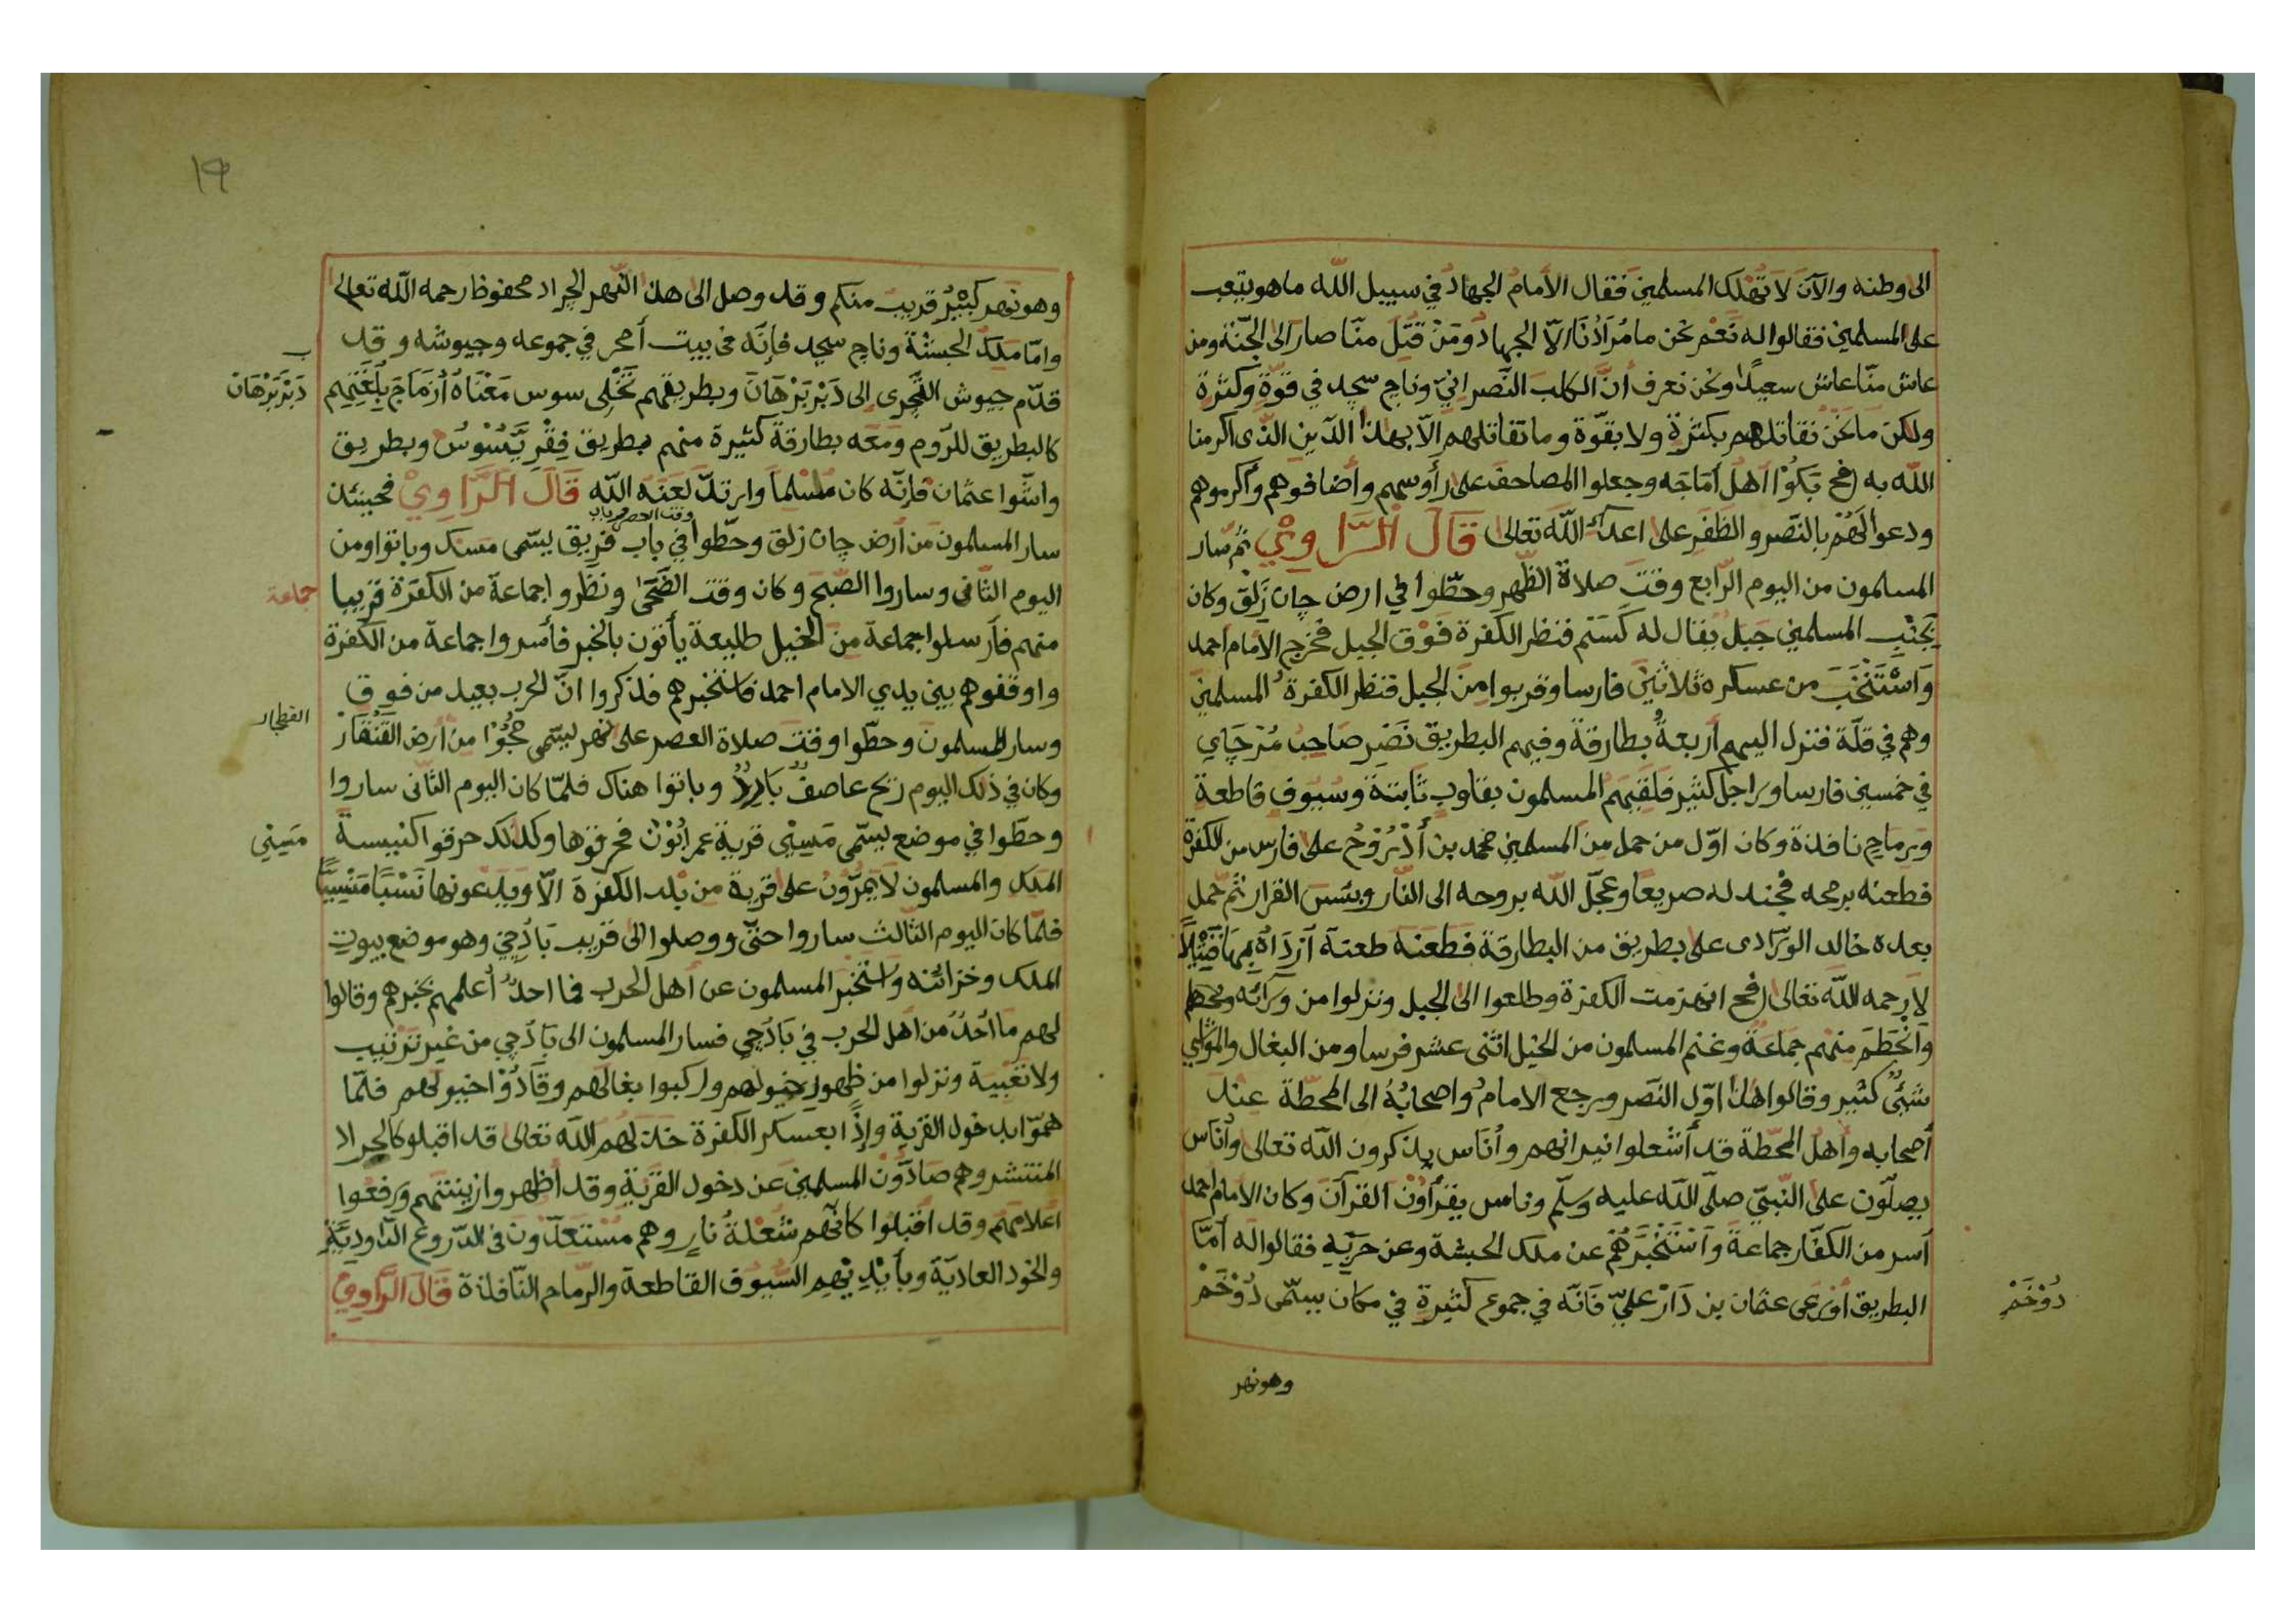 الى وطنه والآنَ لَا تُهْلِك المسلمينَ فقال الأمامُ الجهادُ في سبيل الله ما هو بتعب
على المسلمين فقالوا له نَعَم نحن ما مُرَادُنَا الّا الجهادُ ومَنْ قُتِلَ منّا صار الى الجنّة ومن
عاش منّا عاش سعيدًا ونحن نعرف أنَّ الكلبَ النَّصرانيّ وناج سجد في قوّةٍ وكثرة
ولكن مَا نَحْن نقاتلهم بكثرةٍ ولا بقوّة وما نقاتلهم الّا بهذا الدّين الذي اكرمنا
الله به فح بَكَوْا اهل أمَاجَه وجعلوا المصاحفَ على رأوسهم وأضافوهم وأكرموهم
ودعوا لَهُمْ بالنَّصر والظَّفَرِ على اعداء الله تعالى قَالَ الرَّاوِيْ ثم سار
المسلمون من اليوم الرّابع وقتَ صلاة الظّهر وحطّوا في ارض جان زَلَق وكان
بِجَنْبِ المسلمين جَبَل يقال له كَسَم فنظر الكفرة فَوْقَ الجبل فخرج الامام احمد
وَاسْتَنْخَبَ من عسكره ثلاثينَ فارسا وقربوا مِن الجبل فنظر الكفرةُ المسلمين
وهم في قلّة فنزل اليهم أربعةُ بطارقة وفيهم البطريق نَصْر صَاحِبُ مُزجَاي
في خمسين فارسا وراجل كثير فلقيهم المسلمون بقلوب ثَابتة وسُيُوف قاطعة
وَرماحٍ نافذة وكان اوّل من حمل من المسلمين محمد بن أُذْرُوْحُ على فارس من الكفرة
فطعنه برمحه فجندله صريعا وعجّل الله بروحه الى النّار وبئسَ القرار ثمّ حمل
بعده خالد الورّادى على بطريق من البطارقة فطعنَهُ طعنة أرْدَاهُ بِهَا قَتِيْلًا
لَا رحمه الله تعالى فح انهزمت الكفرة وطلعوا الى الجبل ونزلوا من ورائه
وَانْحَطَمَ منهم جماعَةٌ وغنم المسلمون من الخيل اثنى عشر فرسا ومن البغال والمَوَاشِي
شَيْئٌ كثير وقالوا هذا اوّل النّصر ورجع الامامُ وأصحابُهُ الى المحطّة عند
أصحابه وأهلُ المحطّة قد أشعلوا نيرانهم وأُناس يذكرون الله تعالى وأُناس
يصلّون على النّبيّ صلّى الله عليه وسلّم وناس يقرأوْنَ القرآن وكان الامام احمد
أسر من الكفّار جماعةً وَاسْتَخْبَرَهُمْ عن ملك الحبشة وعن حربِهِ فقالوا له أمّا
البطريق اوْرَعى عثمان بن دَارْ عليّ فَانّه في جموع كثيرةٍ في مكان يسمّى دُوْخَمْ
دُوْخَمْ
وهو نهر
١٩
وهو نهر كَبِيْرٌ قريبٌ منكم وقد وصل الى هذا النّهر الجراد محفوظ رحمه الله تعالى
وامّا ملك الحبشة وناج سجد فإنّه في بيت أمحر في جموعه وجيوشه وقد
قدّم جيوش التّجرى الى دَبْر بَرْهَانَ وبطريقهم تَخْلِى سوس مَعْنَاهُ أزمَاج بِلُغَتِهِم
كالبطريق للرّوم ومَعَه بطارقة كثيرة منهم بطريق فِقْر يَسُوْسُ وبطريق
واسّوا عثمان فإنّه كان مُسْلمًا وارتدّ لَعَنَهُ الله قَالَ الرَّاوِيْ فحينئذ
سار المسلمون من أرض جان زلق وحطّوا في باب فريق يسّمى مسك وباتوا ومن
اليوم الثّانى وساروا الصّبح وكان وقت الضّحَى ونظروا جماعةً من الكفرَة قريبا
منهم فأرسلوا جماعة مِنَ الخيل طليعة يأتون بالخبر فأسروا جماعة من الكفرة
واوقفوهم بين يدي الامام احمد فاستخبرهم فذكروا انّ الحرب بعيد من فوق
وسار المسلمون وحطّوا وقتَ صلاة العصر على نَهر يسّمى حجُوْا من أرض القَنْقَار
وكان في ذلك اليوم ريح عاصفٌ بَارِدٌ وباتوا هناك فلمّا كان اليوم الثّانى ساروا
وحطّوا في موضع يسّمى مَسِيْنِى قرية عمرانُوْن فحرقوها وكذلك حرقوا كنيسة
الملك والمسلمون لَا يَمُرّوْنُ على قرية من بلد الكفرَة الّا ويدعونها نَسْيًا مَنْسِيًّا
فلمّا كان اليوم الثّالث ساروا حتّى ووصلوا الى قريب بَادُجِيْ وهو موضع بيوت
الملك وخزائنه واستخبر المسلمون عن أهل الحرب فما احدٌ أعلمهم بخبرهم وقالوا
لهم مَا احدٌ من اهل الحرب في بَادُجِي فسار المسلمون الى بَادُجِي من غير ترتيب
ولا تعبية ونزلوا من ظهور خيولهم وركبوا بغالَهم وقَادُوْا خيولهم فلمّا
همّوا بدخول القرية وإذًا بعسكر الكفرة خذلهم الله تعالى قد اقبلوا كالجراد
المنتشر وهم صَادّوْن المسلمين عَن دخول القرية وقد أظهروا زينتهم ورفعوا
اعلامهم وقد اقبلوا كأنّهم شعْلةُ نارٍ وهم مُسْتَعدّوْنَ فى الدّروع الدّاوديّةِ
والخود العاديّة وبأيْدِيْهِم السّيُوْف القاطعة والرّماح النّافذة قَالَ الرَّاوِيْ
دَبْر بَرْهَان
جماعة
مَسِيْنِى